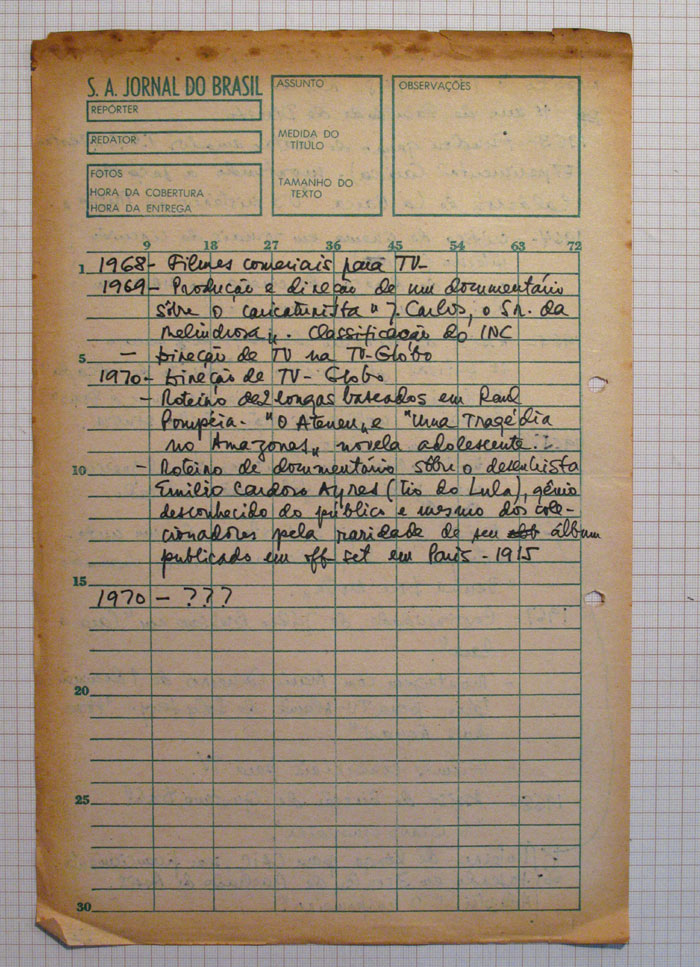 S. A. JORNAL DO BRASIL
REPÓRTER
REDATOR
FOTOS
HORA DA COBERTURA
HORA DA ENTREGA
ASSUNTO
MEDIDA DO
TÍTULO
TAMANHO DO
TEXTO
OBSERVAÇÕES
9 18 27 36 45 54 63 72
1 1968 - Filmes comerciais para TV -
1969 - Produção e direção de um documentário
sôbre o caricaturista "J. Carlos, o Sr. da
Melindrosa". Classificação do INC
5 - Direção de TV na TV-Globo
1970 - Direção de TV - Globo
- Roteiro de 2 longas baseados em Raul
Pompéia - "O Ateneu" e "Uma Tragédia
no Amazonas" novela adolescente...
10 - Roteiro de documentário sôbre o desenhista
Emilio Cardoso Ayres (tio do Lula), gênio
desconhecido do público e mesmo dos cole-
cionadores pela raridade de seu álbum
publicado em off set em Paris - 1915
15
1970 - ???
20
25
30